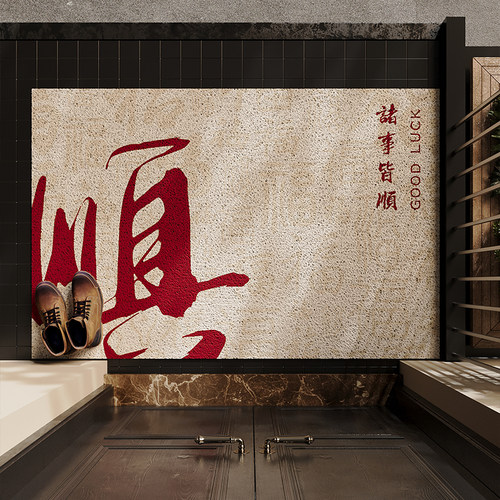 順
諸事皆順
GOOD LUCK